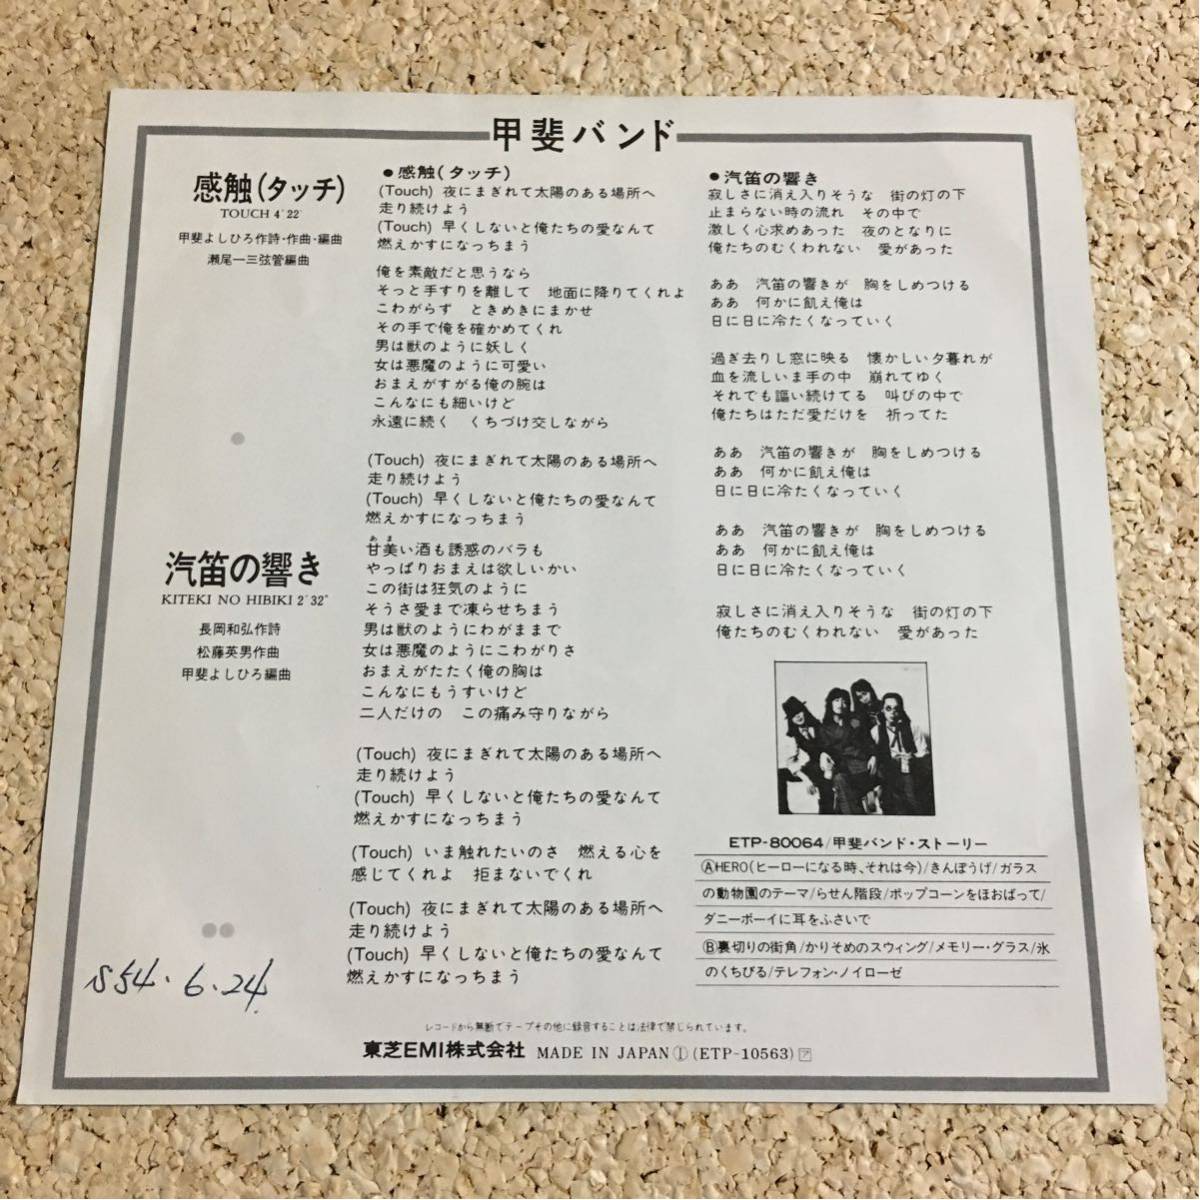 甲斐バンド
感触(タッチ)
TOUCH 4'22"
甲斐よしひろ作詩・作曲・編曲
瀬尾一三弦管編曲
●感触(タッチ)
(Touch) 夜にまぎれて太陽のある場所へ
走り続けよう
(Touch) 早くしないと俺たちの愛なんて
燃えかすになっちまう
俺を素敵だと思うなら
そっと手すりを離して 地面に降りてくれよ
こわがらず ときめきにまかせ
その手で俺を確かめてくれ
男は獣のように妖しく
女は悪魔のように可愛い
おまえがすがる俺の腕は
こんなにも細いけど
永遠に続く くちづけ交しながら
(Touch) 夜にまぎれて太陽のある場所へ
走り続けよう
(Touch) 早くしないと俺たちの愛なんて
燃えかすになっちまう
あま
甘美い酒も誘惑のバラも
やっぱりおまえは欲しいかい
この街は狂気のように
そうさ愛まで凍らせちまう
男は獣のようにわがままで
女は悪魔のようにこわがりさ
おまえがたたく俺の胸は
こんなにもうすいけど
二人だけの この痛み守りながら
(Touch) 夜にまぎれて太陽のある場所へ
走り続けよう
(Touch) 早くしないと俺たちの愛なんて
燃えかすになっちまう
(Touch) いま触れたいのさ 燃える心を
感じてくれよ 拒まないでくれ
(Touch) 夜にまぎれて太陽のある場所へ
走り続けよう
(Touch) 早くしないと俺たちの愛なんて
燃えかすになっちまう
汽笛の響き
KITEKI NO HIBIKI 2'32"
長岡和弘作詩
松藤英男作曲
甲斐よしひろ編曲
●汽笛の響き
寂しさに消え入りそうな 街の灯の下
止まらない時の流れ その中で
激しく心求めあった 夜のとなりに
俺たちのむくわれない 愛があった
ああ 汽笛の響きが 胸をしめつける
ああ 何かに飢え俺は
日に日に冷たくなっていく
過ぎ去りし窓に映る 懐かしい夕暮れが
血を流しいま手の中 崩れてゆく
それでも謳い続けてる 叫びの中で
俺たちはただ愛だけを 祈ってた
ああ 汽笛の響きが 胸をしめつける
ああ 何かに飢え俺は
日に日に冷たくなっていく
ああ 汽笛の響きが 胸をしめつける
ああ 何かに飢え俺は
日に日に冷たくなっていく
寂しさに消え入りそうな 街の灯の下
俺たちのむくわれない 愛があった
ETP-80064/甲斐バンド・ストーリー
ⒶHERO(ヒーローになる時、それは今)/きんぽうげ/ガラス
の動物園のテーマ/らせん階段/ポップコーンをほおばって/
ダニーボーイに耳をふさいで
Ⓑ裏切りの街角/かりそめのスウィング/メモリー・グラス/氷
のくちびる/テレフォン・ノイローゼ
S54.6.24.
レコードから無断でテープその他に録音することは法律で禁じられています。
東芝EMI株式会社 MADE IN JAPAN Ⓘ (ETP-10563) ア